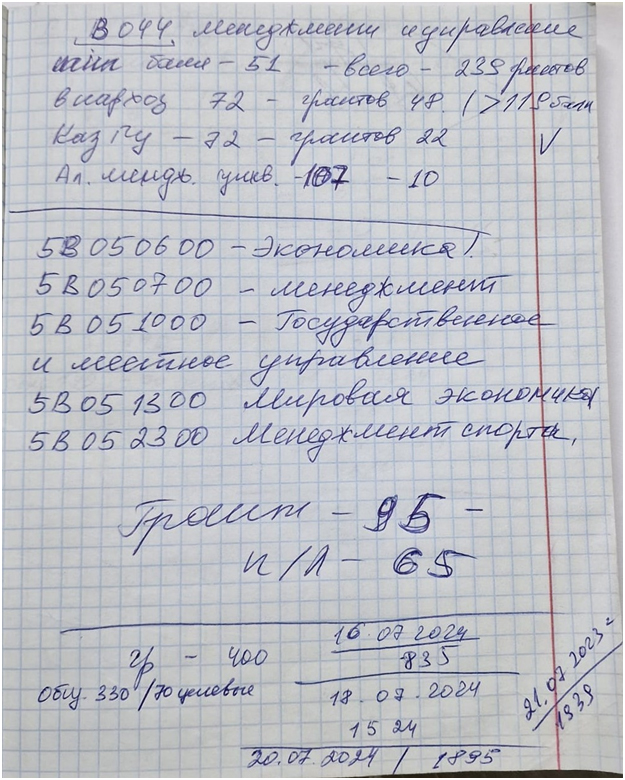 B 044. менеджмент и управление
мин балл - 51 - всего - 239 грантов
в нархоз 72 - грантов 48. ( > 119 балл
Каз ГУ - 72 - грантов 22 V
Ал. мендж. унив. - 107 - 10
5B050600 - Экономика!
5B050700 - менеджмент
5B051000 - Государственное
и местное управление
5B051300 Мировая экономика
5B052300 Менеджмент спорта,
Грант - 95 -
п/л - 65
16.07 2024
гр - 400 835
общ. 330 / 70 целевые 18.07.2024
1524
20.07.2024 / 1895
21.07.2023 =
1939